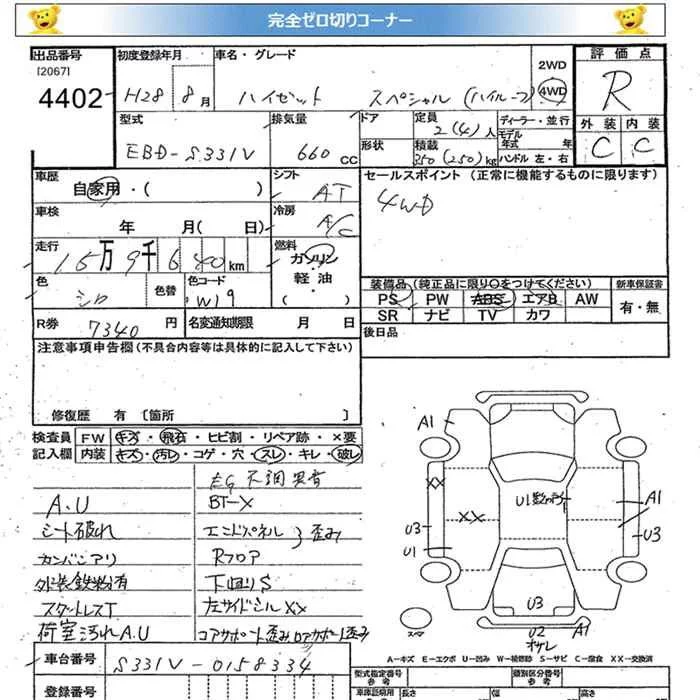 完全ゼロ切りコーナー
出品番号
[2067]
4402
初度登録年月
H28 8月
車名・グレード
ハイゼット スペシャル(ハイルーフ)
2WD
4WD
評価点
R
外装 内装
C C
型式
EBD-S331V
排気量
660 CC
ドア
形状
定員
2(4)人
積載
350(250)kg
ディーラー・並行
モデル年式 年
ハンドル 左・右
車歴
自家用・( )
シフト
AT
車検
年 月( 日)
冷房
A/C
走行
15万9千640km
燃料
ガソリン
軽油
( )
色
シロ
色替
色コード
W19
セールスポイント(正常に機能するものに限ります)
4WD
装備品(純正品に限り○をつけてください)
PS PW ABS エアB AW
SR ナビ TV カワ
新車保証書
有・無
R券
7340円
名変通知期限 月 日
後日品
注意事項申告欄(不具合内容等は具体的に記入して下さい)
修復歴 有〔箇所 〕
検査員記入欄
FW キズ・飛石・ヒビ割・リペア跡・×要
内装 キズ・汚レ・コゲ・穴・スレ・キレ・破レ
EG不調異音
A.U BT-X
シート破れ エンドパネル 歪み
カンバンアリ Rフロア
外装鉄粉有 下廻りS
スタットレスT 左サイドシルXX
荷室汚れA.U コアサポート歪み ロアサポート歪み
A1
XX
XX
U1
A1
U3
U3
U1
U3
スペア
U2
A1
オサレ
A-キズ E-エクボ U-凹み W-補修跡 S-サビ C-腐食 XX-交換済
車台番号
S331V-0158334
登録番号
型式指定番号
参考
類別区分番号
参考
車庫証明用
参考
長さ
幅
高さ